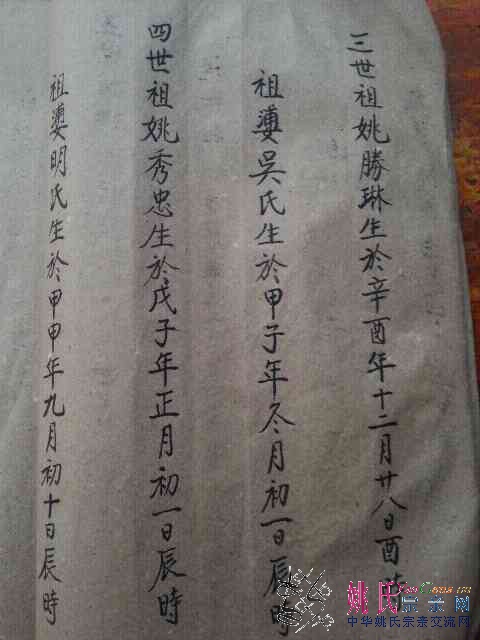 三世祖姚勝琳生於辛酉年十二月廿八日酉時
祖婆吳氏生於甲子年冬月初一日辰時
四世祖姚秀忠生於戊子年正月初一日辰時
祖婆明氏生於甲甲年九月初十日辰時
姚氏宗亲网
中华姚氏宗亲交流网